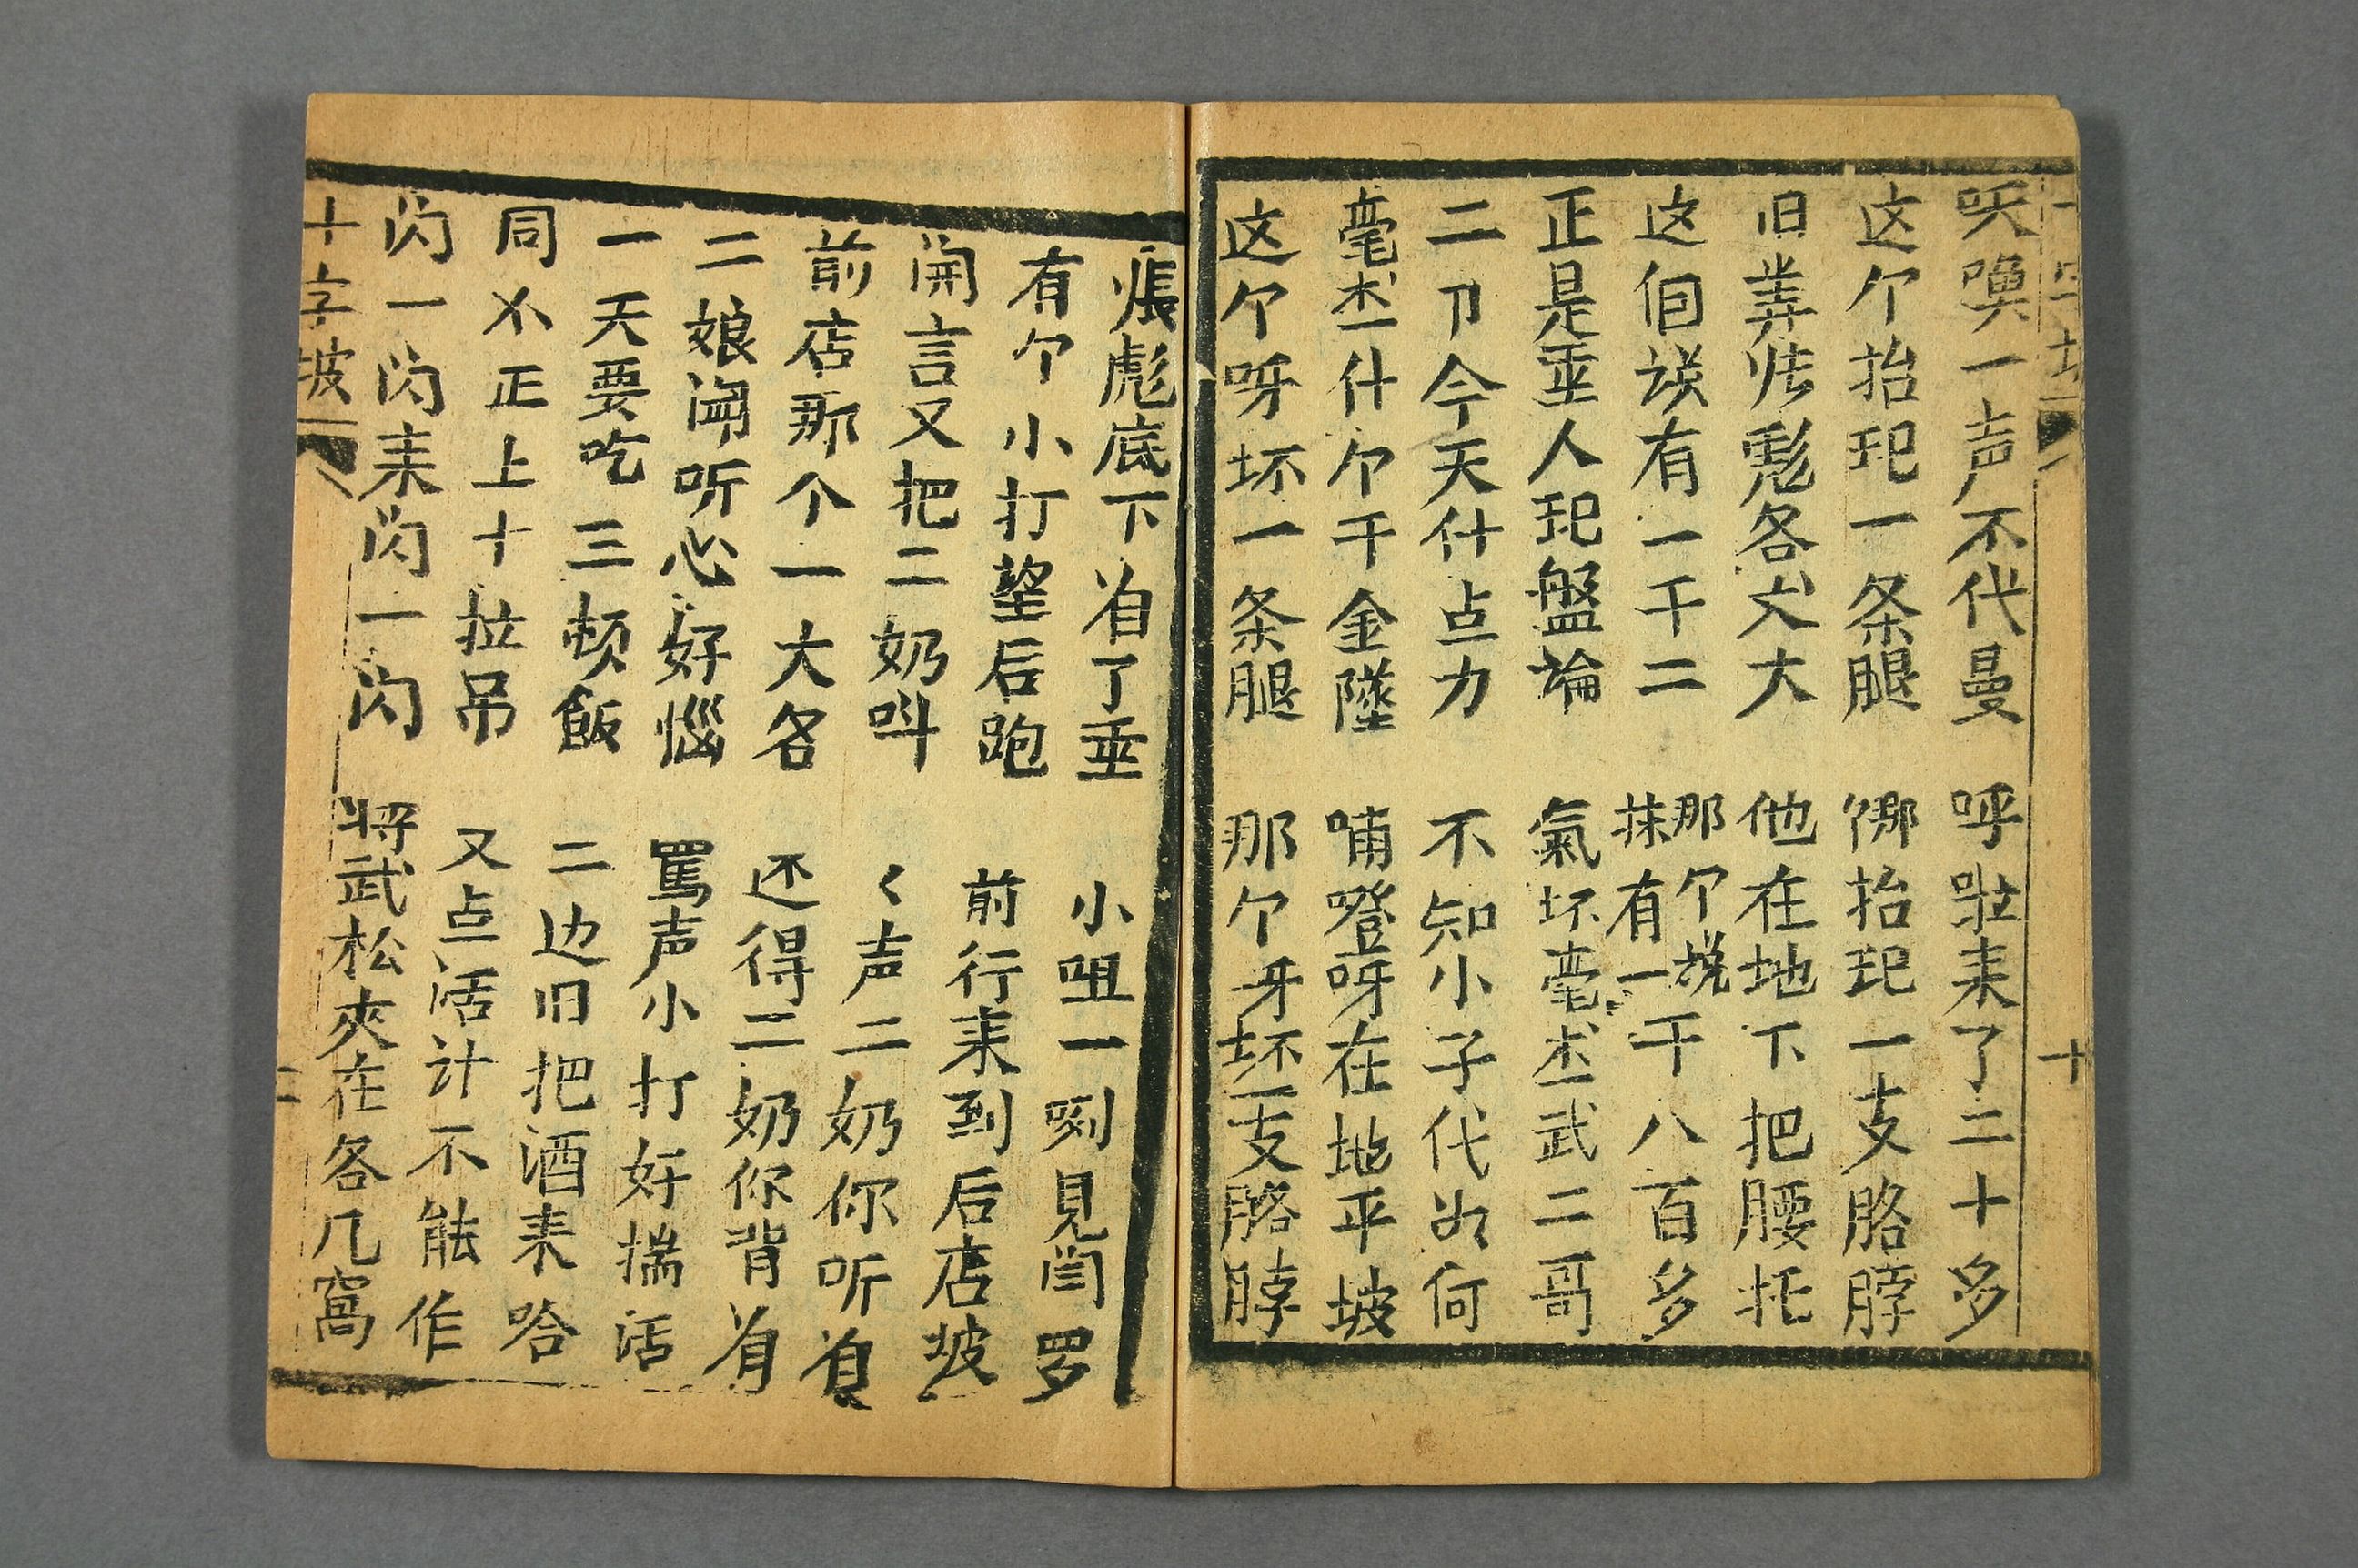 吠喚一声不代曼 呼啦来了二十多
这个抬 一条腿 抬 一支胳脖
旧 彪各大大 他在地下把腰托
这 说有一千二 那个说抹有一千八百多
正是 人 盤論 氣坏毫杰武二哥
二 今天什点力 不知小子代 何
毫杰什个千金墜 哺噔呀在地平坡
这个呀坏一条腿 那个牙坯一支胳脖
彪底下 了 小咀一咧見闫罗
有个小打望后跑 前行来到后店坡
開言又把二奶叫 〻声二奶你听
前店那个一大各 还得二奶你背
二娘闻听心好惱 罵声小打好揣活
一天要吃三顿飯 二边旧把酒来哈
同不正上十拉吊 又点活计不能作
闪一闪来闪一闪 将武松夾在各几窩
十字坡
十